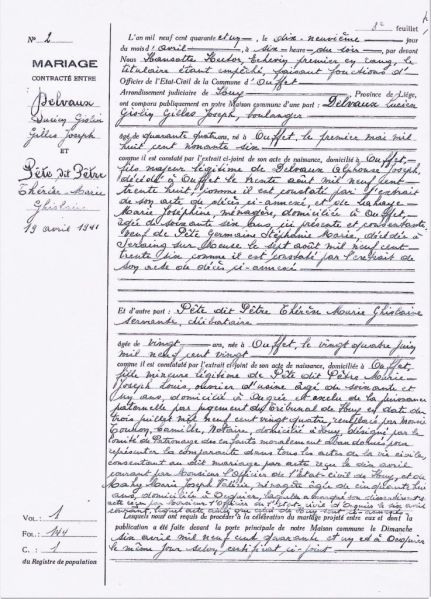 2e feuillet
N° 2
MARIAGE
CONTRACTÉ ENTRE
Delvaux
Lucien Gislin
Gilles Joseph
ET
Pête dit Pêtre
Thérèse Marie
Ghislaine
19 avril 1941
L'an mil neuf cent quarante et un, le dix-neuvième jour
du mois d'avril, à six heure du soir, par devant
Nous Hansotte Hector Echevin premier en rang, le
titulaire étant empêché, faisant fonctions d'
Officier de l'Etat-Civil de la Commune d'Ouffet
Arrondissement judiciaire de Huy, Province de Liége,
ont comparu publiquement en notre Maison commune d'une part : Delvaux Lucien
Gislin Gilles Joseph, boulanger
âgé de quarante quatre ans, né à Ouffet, le premier mai mil
huit cent nonante six
comme il est constaté par l'extrait ci-joint de son acte de naissance, domicilié à Ouffet,
fils majeur légitime de Delvaux Alphonse Joseph,
décédé à Ouffet le trente août mil neuf cent
trente huit, comme il est constaté par l'extrait
de son acte de décès ci-annexé, et de
Marie Joséphine, ménagère, domiciliée à Ouffet,
âgée de soixante six ans, ici présente et consentante,
veuf de Pête Germaine Stéphanie Marie, décédée à
Seraing sur Meuse le sept août mil neuf cent
trente six comme il est constaté par l'extrait de
son acte de décès ci-annexé
Et d'autre part : Pête dit Pêtre Thérèse Marie Ghislaine
servante, célibataire
âgée de vingt ans, née à Ouffet, le vingt quatre juin
mil neuf cent vingt
comme il est constaté par l'extrait ci-joint de son acte de naissance, domiciliée à Ouffet,
fille mineure légitime de Pête dit Pêtre
Joseph Louis, ouvrier d'usine âgé de soixante et
un ans, domicilié à Ougrée et exclu de la puissance
paternelle par jugement du Tribunal de Huy en date du
trois juillet mil neuf cent vingt quatre, remplacé par
Camille, Notaire, domicilié à Huy, désigné par le
Comité de Patronage des enfants moralement abandonnés pour
représenter la comparante dans tous les actes de la vie civile,
consentant au dit mariage par acte reçu le dix avril
courant par Monsieur l'Officier de l'Etat-civil de Huy, et de
Marie Joseph ménagère âgée de cinquante huit
ans, domiciliée à
acte reçu par Monsieur l'Officier de l'Etat civil le six avril
courant,
Lesquels nous ont requis de procéder à la célébration du mariage projeté entre eux et dont la
publication a été faite devant la porte principale de notre Maison commune le Dimanche
six avril mil neuf cent quarante et un et à
le même jour selon certificat ci-joint
VOL. : 1
FOL. : 144
C. : 1
du Registre de population